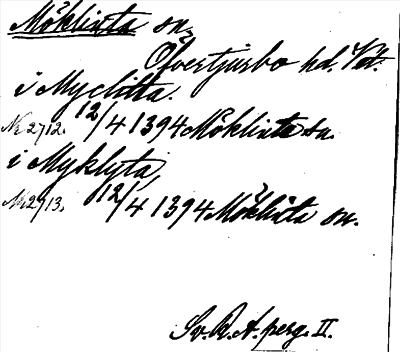 Möklinta sn,
Övertjurbo hd. Vstm.
i Myclitta.
Nr 2712. 12/4 1394 Möklinta sn.
i Myklyta,
Nr 2713. 12/4 1394 Möklinta sn.
Sv. R. A. perg. II.